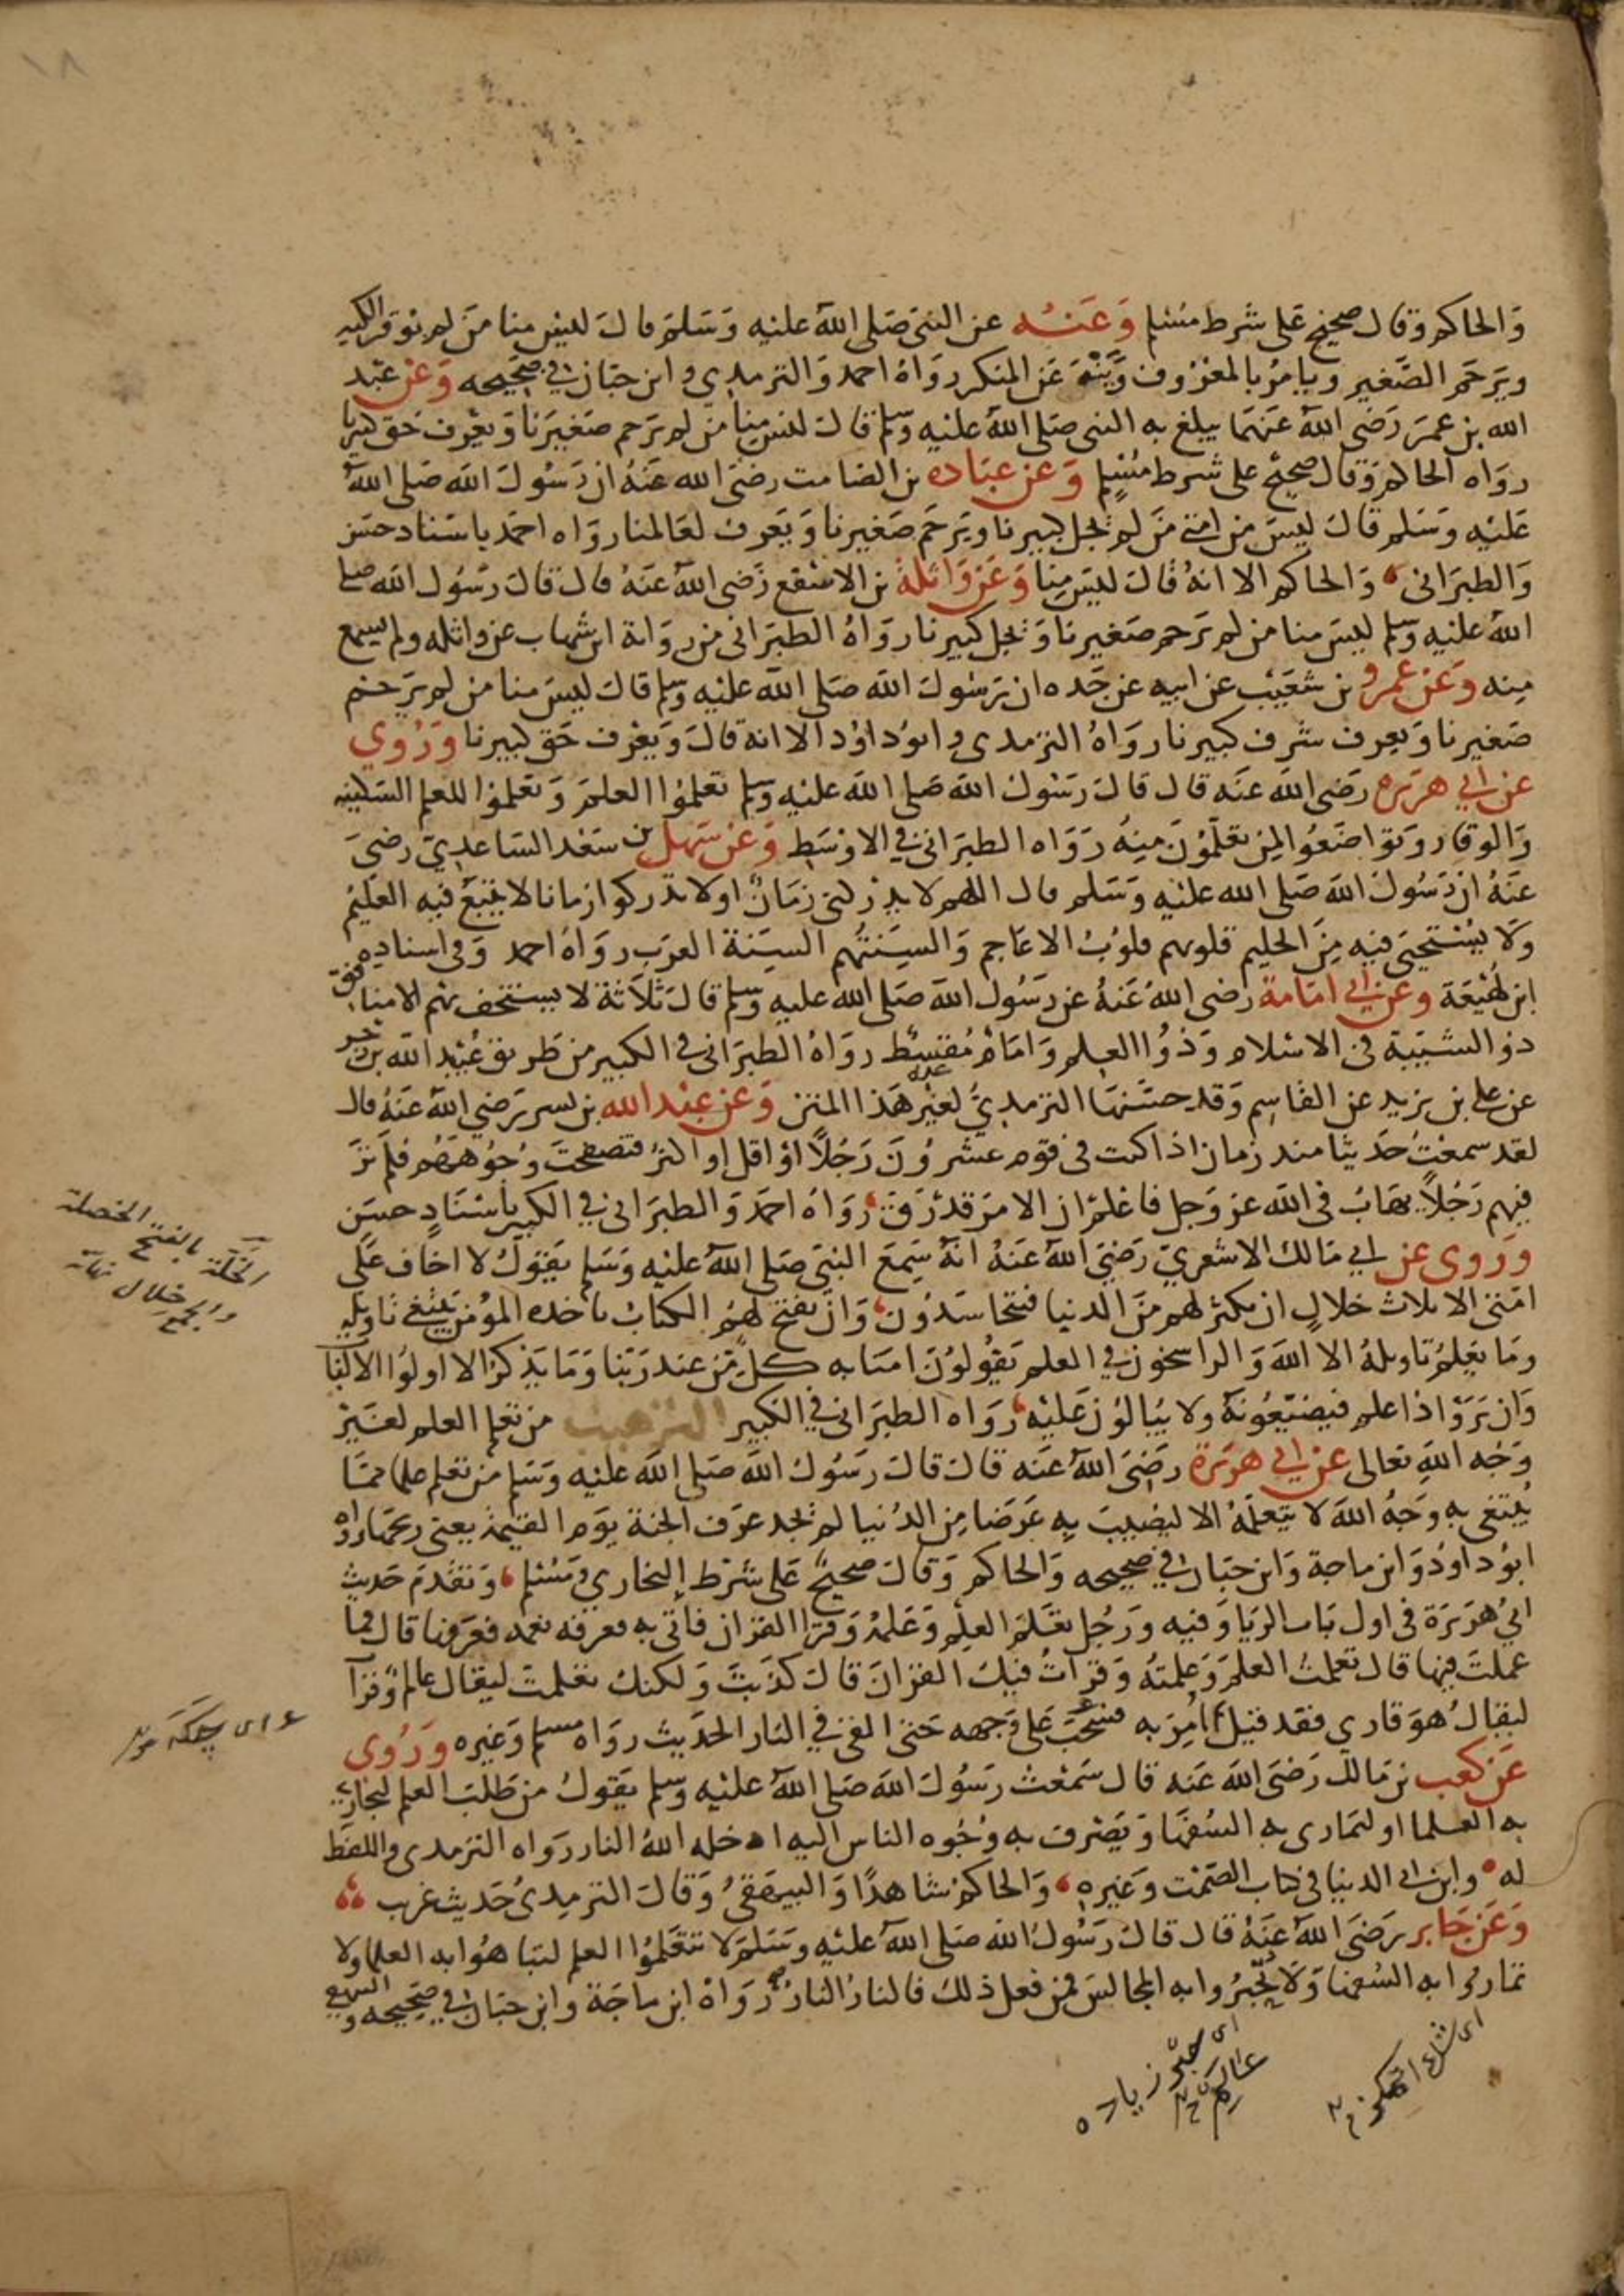 ١٨
والحاكم وقال صحيح على شرط مسلم وعنه عن النبي صلى الله عليه وسلم قال ليس منا من لم يوقر الكبير
ويرحم الصغير ويامر بالمعروف وينه عن المنكر رواه احمد والترمذي وابن حبان في صحيحه وعن عبد
الله بن عمر رضي الله عنهما يبلغ به النبي صلى الله عليه وسلم قال ليس منا من لم يرحم صغيرنا ويعرف حق كبيرنا
رواه الحاكم وقال صحيح على شرط مسلم وعن عباده بن الصامت رضي الله عنه ان رسول الله صلى الله
عليه وسلم قال ليس من امتي من لم يجل كبيرنا ويرحم صغيرنا ويعرف لعالمنا رواه احمد باسناد حسن
والطبراني والحاكم الا انه قال ليس منا وعن واثلة بن الاسقع رضي الله عنه قال قال رسول الله صلى
الله عليه وسلم ليس منا من لم يرحم صغيرنا ويجل كبيرنا رواه الطبراني من رواية ابن شهاب عن واثله ولم يسمع
منه وعن عمرو بن شعيب عن ابيه عن جده ان رسول الله صلى الله عليه وسلم قال ليس منا من لم يرحم
صغيرنا ويعرف شرف كبيرنا رواه الترمذي وابوداود الا انه قال ويعرف حق كبيرنا وروي
عن ابي هريره رضي الله عنه قال قال رسول الله صلى الله عليه وسلم تعلموا العلم وتعلموا للعلم السكينه
والوقار وتواضعوا لمن تعلمون منه رواه الطبراني في الاوسط وعن سهل بن سعد الساعدي رضي
عنه ان رسول الله صلى الله عليه وسلم قال اللهم لا يدركني زمان او لا تدركوا زمانا لا يتبع فيه العليم
ولا يستحيى فيه من الحليم قلوبهم قلوب الاعاجم والسنتهم السنة العرب رواه احمد وفي اسناده
ابن لهيعة وعن ابي امامة رضي الله عنه عن رسول الله صلى الله عليه وسلم قال ثلاثة لا يستخف بهم الا منافق
ذو الشيبة في الاسلام وذوا العلم وامام مقسط رواه الطبراني في الكبير من طريق عبيد الله بن زحر
عن علي بن يزيد عن القاسم وقد حسنها الترمذي لغير هذا المتن وعن عبد الله بن بسر رضي الله عنه قال
لقد سمعت حديثا منذ زمان اذا كنت في قوم عشرون رجلا او اقل او اكثر فتصفحت وجوههم فلم تر
فيهم رجلا يهاب في الله عز وجل فاعلم ان الامر قد رق رواه احمد والطبراني في الكبير باسناد حسن
وروى عن ابي مالك الاشعري رضي الله عنه انه سمع النبي صلى الله عليه وسلم يقول لا اخاف على
امتي الا ثلاث خلال ان يكثر لهم من الدنيا فيتحاسدون وان يفتح لهم الكتاب ياخذه المؤمن يبتغي تاويله
وما يعلم تاويله الا الله والراسخون في العلم يقولون امنا به كل من عند ربنا وما يذكر الا اولوا الالباب
وان يروا ذا علم فيضيعونه ولا يبالون عليه رواه الطبراني في الكبير الترهيب من تعلم العلم لغير
وجه الله تعالى عن ابي هريرة رضي الله عنه قال قال رسول الله صلى الله عليه وسلم من تعلم علما مما
يبتغى به وجه الله لا يتعلمه الا ليصيب به عرضا من الدنيا لم يجد عرف الجنة يوم القيمة يعني ريحها رواه
ابوداود وابن ماجة وابن حبان في صحيحه والحاكم وقال صحيح على شرط البخاري ومسلم وتقدم حديث
ابي هريرة في اول باب الريا وفيه ورجل تعلم العلم وعلمه وقرا القران فاتي به فعرفه نعمه فعرفها قال فما
عملت فيها قال تعلمت العلم وعلمته وقرات فيك القران قال كذبت ولكنك تعلمت ليقال عالم وقرآ
ليقال هو قاري فقد قيل ثم امر به فسحب على وجهه حتى القي في النار الحديث رواه مسلم وغيره وروي
عن كعب بن مالك رضي الله عنه قال سمعت رسول الله صلى الله عليه وسلم يقول من طلب العلم ليجاري
به العلما او ليماري به السفها ويصرف به وجوه الناس اليه ادخله الله النار رواه الترمذي واللفظ
له وابن ابي الدنيا في كتاب الصمت وغيره والحاكم شاهدا والبيهقي وقال الترمذي حديث غريب
وعن جابر رضي الله عنه قال قال رسول الله صلى الله عليه وسلم لا تتعلموا العلم لتباهوا به العلما ولا
تماروا به السفها ولا تخيروا به المجالس فمن فعل ذلك فالنار النار رواه ابن ماجة وابن حبان في صحيحه و
الخلة بالفتح الخصلة
والجمع خلال نهاية